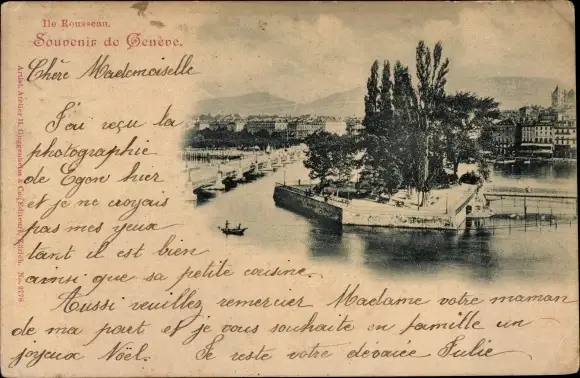 Ile Rousseau.
Souvenir de Genève.
Chère Mademoiselle
J'ai reçu la
photographie
de Egon hier
et je ne croyais
pas mes yeux
tant il est bien
ainsi que sa petite cousine.
Aussi veuillez remercier Madame votre maman
de ma part et je vous souhaite en famille un
joyeux Noël. Je reste votre dévouée Julie
Artist. Atelier H. Guggenheim & Co., Editeurs, Zürich. No. 2778